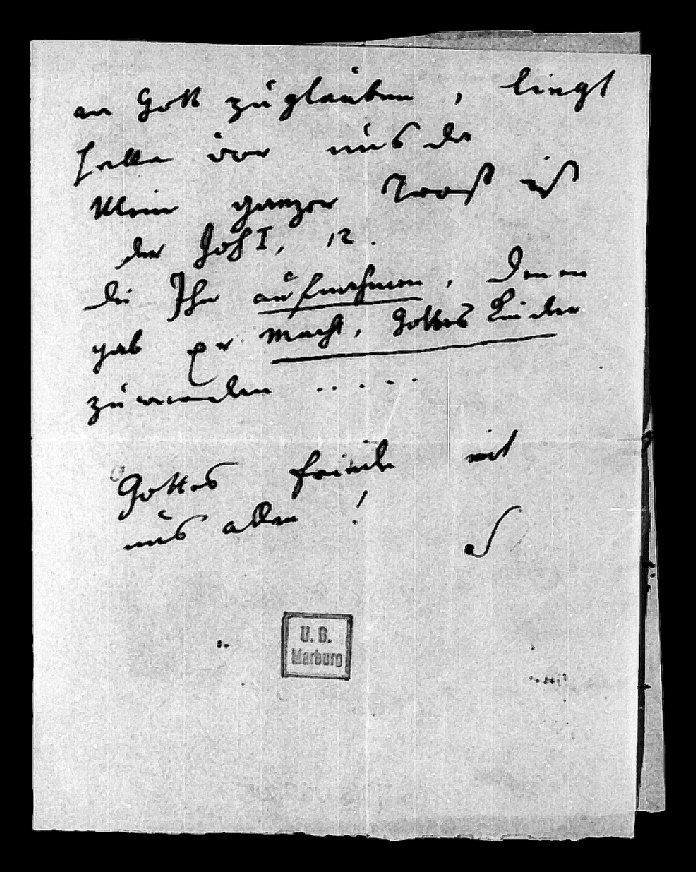 an Gott zuglauben, liegt
helle vor uns da
Mein ganzer Trost ist
der Joh I, 12.
die Ihn aufnahmen, denen
gab er Macht, Gottes Kinder
zuwerden .....
Gottes Friede mit
uns allen!
U. B.
Marburg